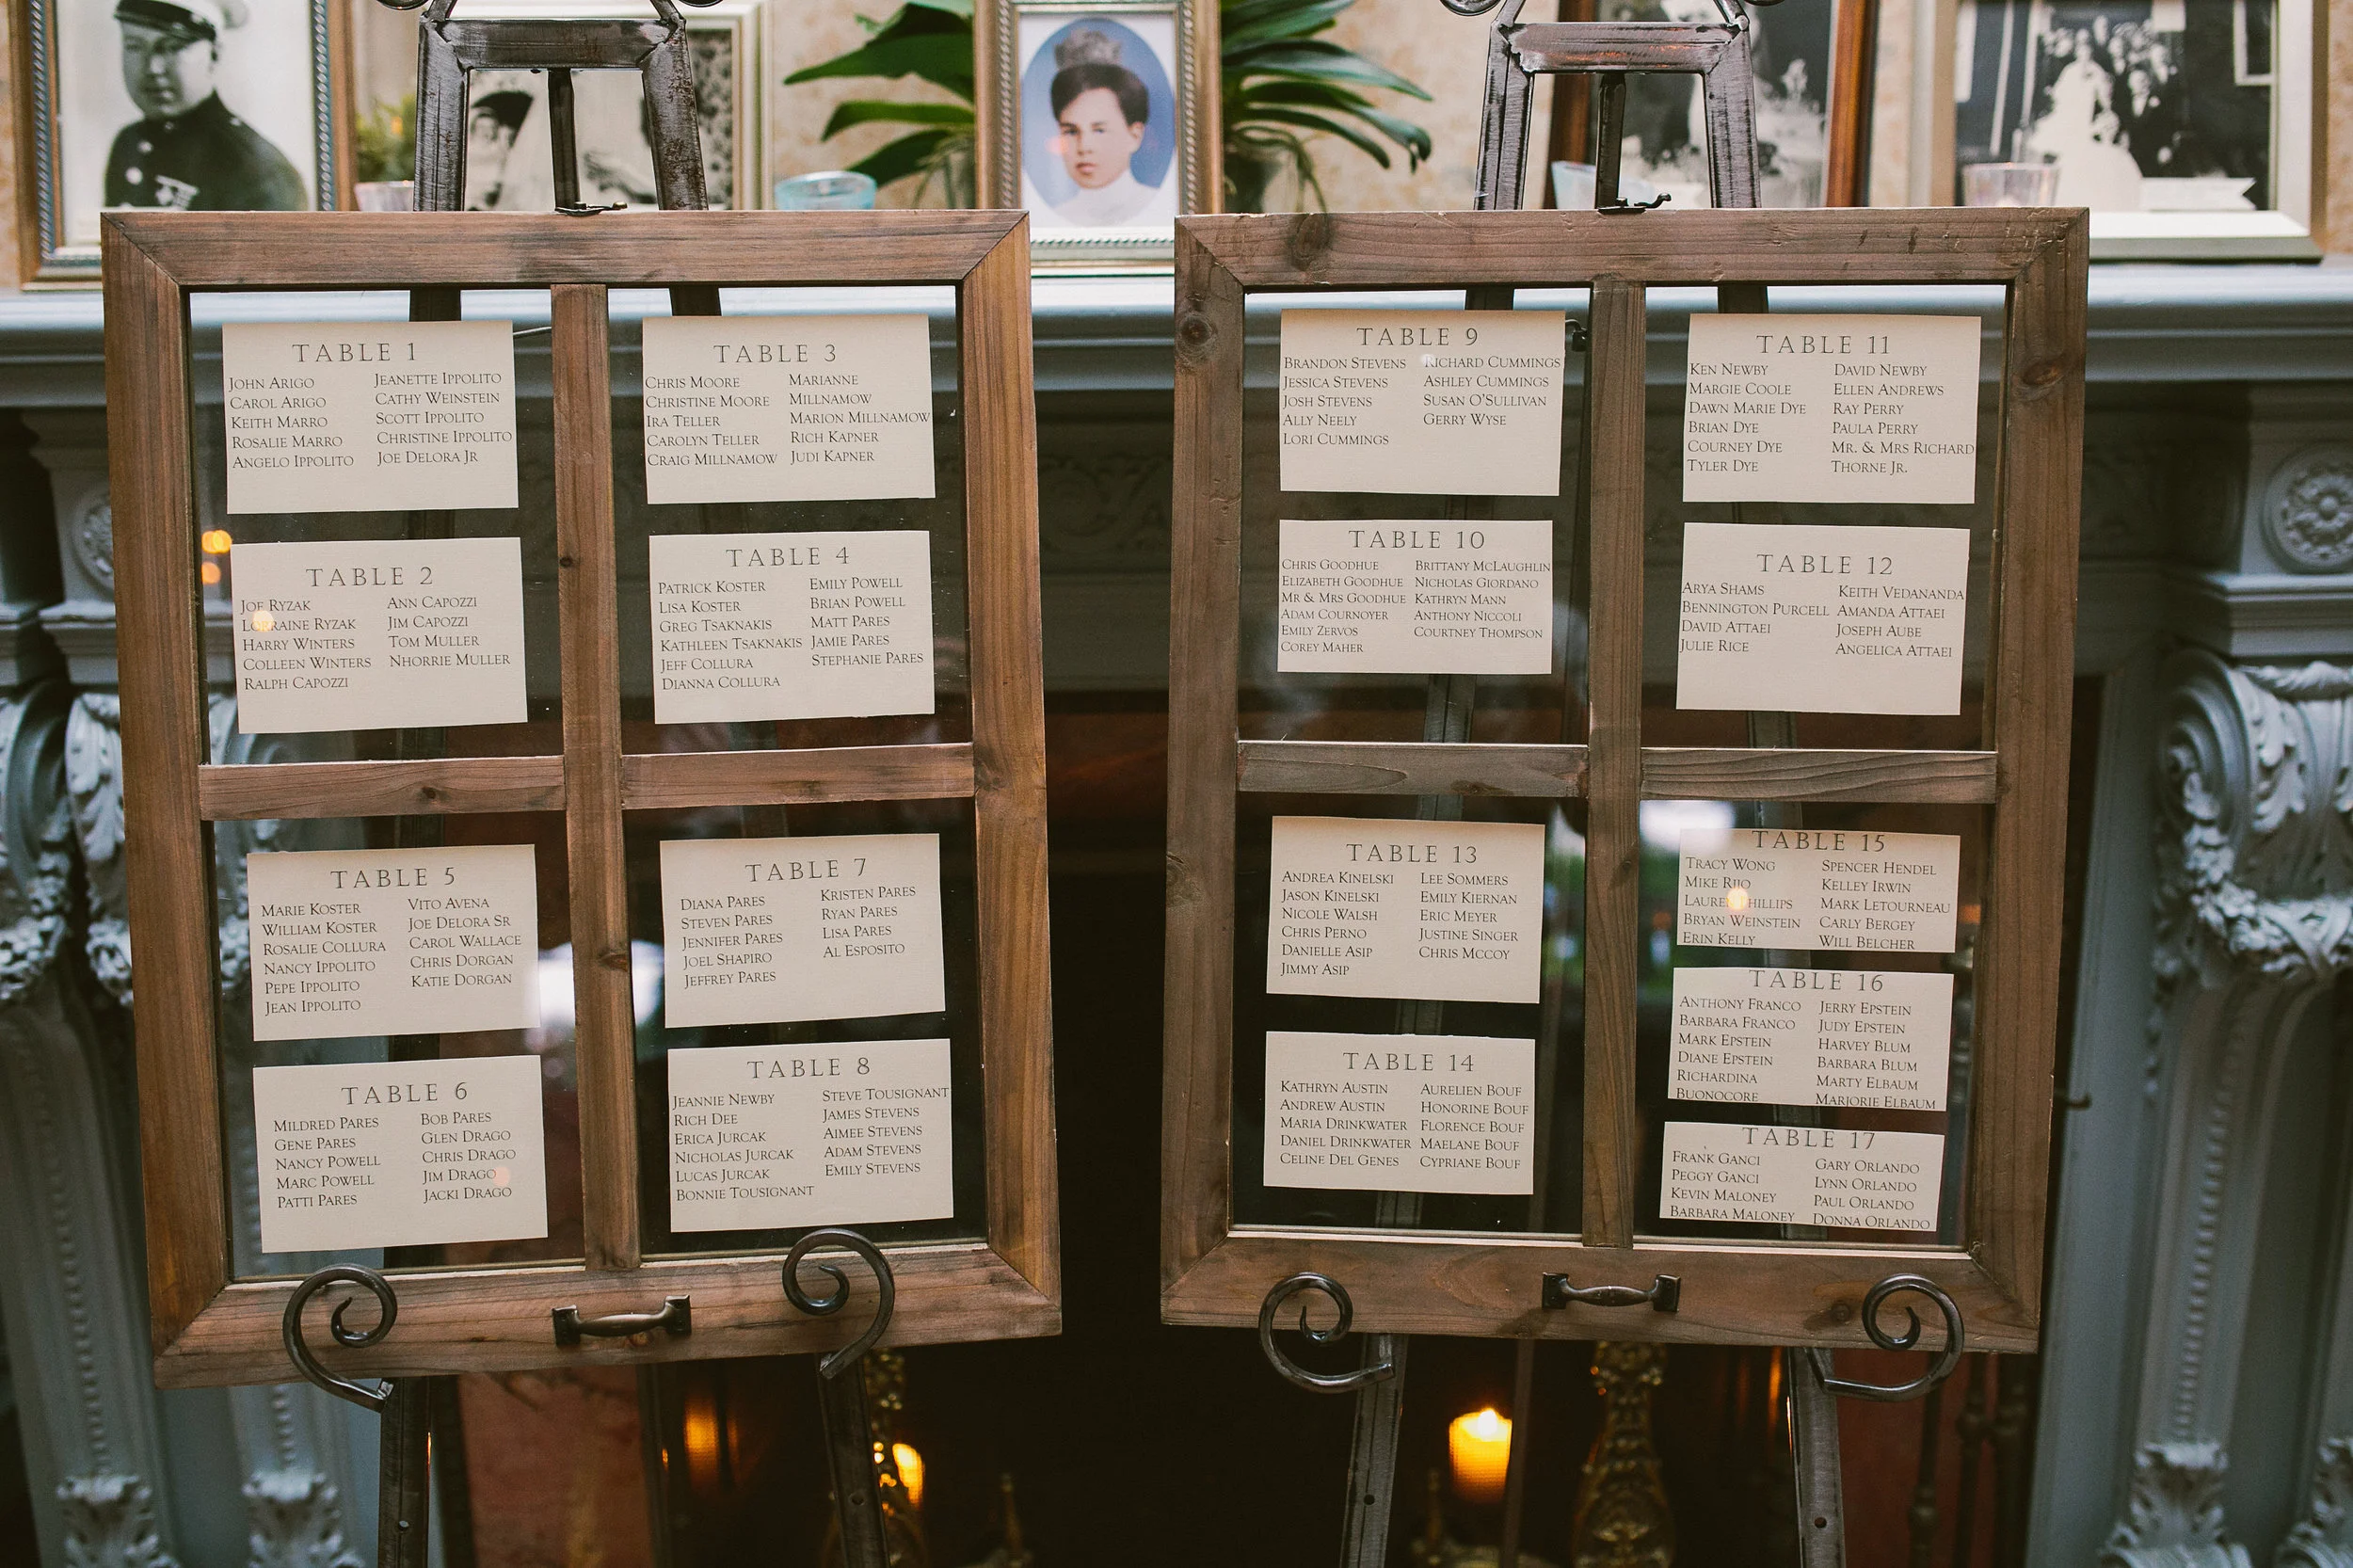 TABLE 1
JOHN ARIGO
CAROL ARIGO
KEITH MARRO
ROSALIE MARRO
ANGELO IPPOLITO
JEANETTE IPPOLITO
CATHY WEINSTEIN
SCOTT IPPOLITO
CHRISTINE IPPOLITO
JOE DELORA JR
TABLE 2
JOE RYZAK
LORRAINE RYZAK
HARRY WINTERS
COLLEEN WINTERS
RALPH CAPOZZI
ANN CAPOZZI
JIM CAPOZZI
TOM MULLER
NHORRIE MULLER
TABLE 3
CHRIS MOORE
CHRISTINE MOORE
IRA TELLER
CAROLYN TELLER
CRAIG MILLNAMOW
MARIANNE
MILLNAMOW
MARION MILLNAMOW
RICH KAPNER
JUDI KAPNER
TABLE 4
PATRICK KOSTER
LISA KOSTER
GREG TSAKNAKIS
KATHLEEN TSAKNAKIS
JEFF COLLURA
DIANNA COLLURA
EMILY POWELL
BRIAN POWELL
MATT PARES
JAMIE PARES
STEPHANIE PARES
TABLE 5
MARIE KOSTER
WILLIAM KOSTER
ROSALIE COLLURA
NANCY IPPOLITO
PEPE IPPOLITO
JEAN IPPOLITO
VITO AVENA
JOE DELORA SR
CAROL WALLACE
CHRIS DORGAN
KATIE DORGAN
TABLE 6
MILDRED PARES
GENE PARES
NANCY POWELL
MARC POWELL
PATTI PARES
BOB PARES
GLEN DRAGO
CHRIS DRAGO
JIM DRAGO
JACKI DRAGO
TABLE 7
DIANA PARES
STEVEN PARES
JENNIFER PARES
JOEL SHAPIRO
JEFFREY PARES
KRISTEN PARES
RYAN PARES
LISA PARES
AL ESPOSITO
TABLE 8
JEANNIE NEWBY
RICH DEE
ERICA JURCAK
NICHOLAS JURCAK
LUCAS JURCAK
BONNIE TOUSIGNANT
STEVE TOUSIGNANT
JAMES STEVENS
AIMEE STEVENS
ADAM STEVENS
EMILY STEVENS
TABLE 9
BRANDON STEVENS
JESSICA STEVENS
JOSH STEVENS
ALLY NEELY
LORI CUMMINGS
RICHARD CUMMINGS
ASHLEY CUMMINGS
SUSAN O'SULLIVAN
GERRY WYSE
TABLE 10
CHRIS GOODHUE
ELIZABETH GOODHUE
MR & MRS GOODHUE
ADAM COURNOYER
EMILY ZERVOS
COREY MAHER
BRITTANY MCLAUGHLIN
NICHOLAS GIORDANO
KATHRYN MANN
ANTHONY NICCOLI
COURTNEY THOMPSON
TABLE 11
KEN NEWBY
MARGIE COOLE
DAWN MARIE DYE
BRIAN DYE
COURNEY DYE
TYLER DYE
DAVID NEWBY
ELLEN ANDREWS
RAY PERRY
PAULA PERRY
MR. & MRS RICHARD
THORNE JR.
TABLE 12
ARYA SHAMS
BENNINGTON PURCELL
DAVID ATTAEI
JULIE RICE
KEITH VEDANANDA
AMANDA ATTAEI
JOSEPH AUBE
ANGELICA ATTAEI
TABLE 13
ANDREA KINELSKI
JASON KINELSKI
NICOLE WALSH
CHRIS PERNO
DANIELLE ASIP
JIMMY ASIP
LEE SOMMERS
EMILY KIERNAN
ERIC MEYER
JUSTINE SINGER
CHRIS MCCOY
TABLE 14
KATHRYN AUSTIN
ANDREW AUSTIN
MARIA DRINKWATER
DANIEL DRINKWATER
CELINE DEL GENES
AURELIEN BOUF
HONORINE BOUF
FLORENCE BOUF
MAELANE BOUF
CYPRIANE BOUF
TABLE 15
TRACY WONG
MIKE
LAUREN PHILLIPS
BRYAN WEINSTEIN
ERIN KELLY
SPENCER HENDEL
KELLEY IRWIN
MARK LETOURNEAU
CARLY BERGEY
WILL BELCHER
TABLE 16
ANTHONY FRANCO
BARBARA FRANCO
MARK EPSTEIN
DIANE EPSTEIN
RICHARDINA
BUONOCORE
JERRY EPSTEIN
JUDY EPSTEIN
HARVEY BLUM
BARBARA BLUM
MARTY ELBAUM
MARJORIE ELBAUM
TABLE 17
FRANK GANCI
PEGGY GANCI
KEVIN MALONEY
BARBARA MALONEY
GARY ORLANDO
LYNN ORLANDO
PAUL ORLANDO
DONNA ORLANDO